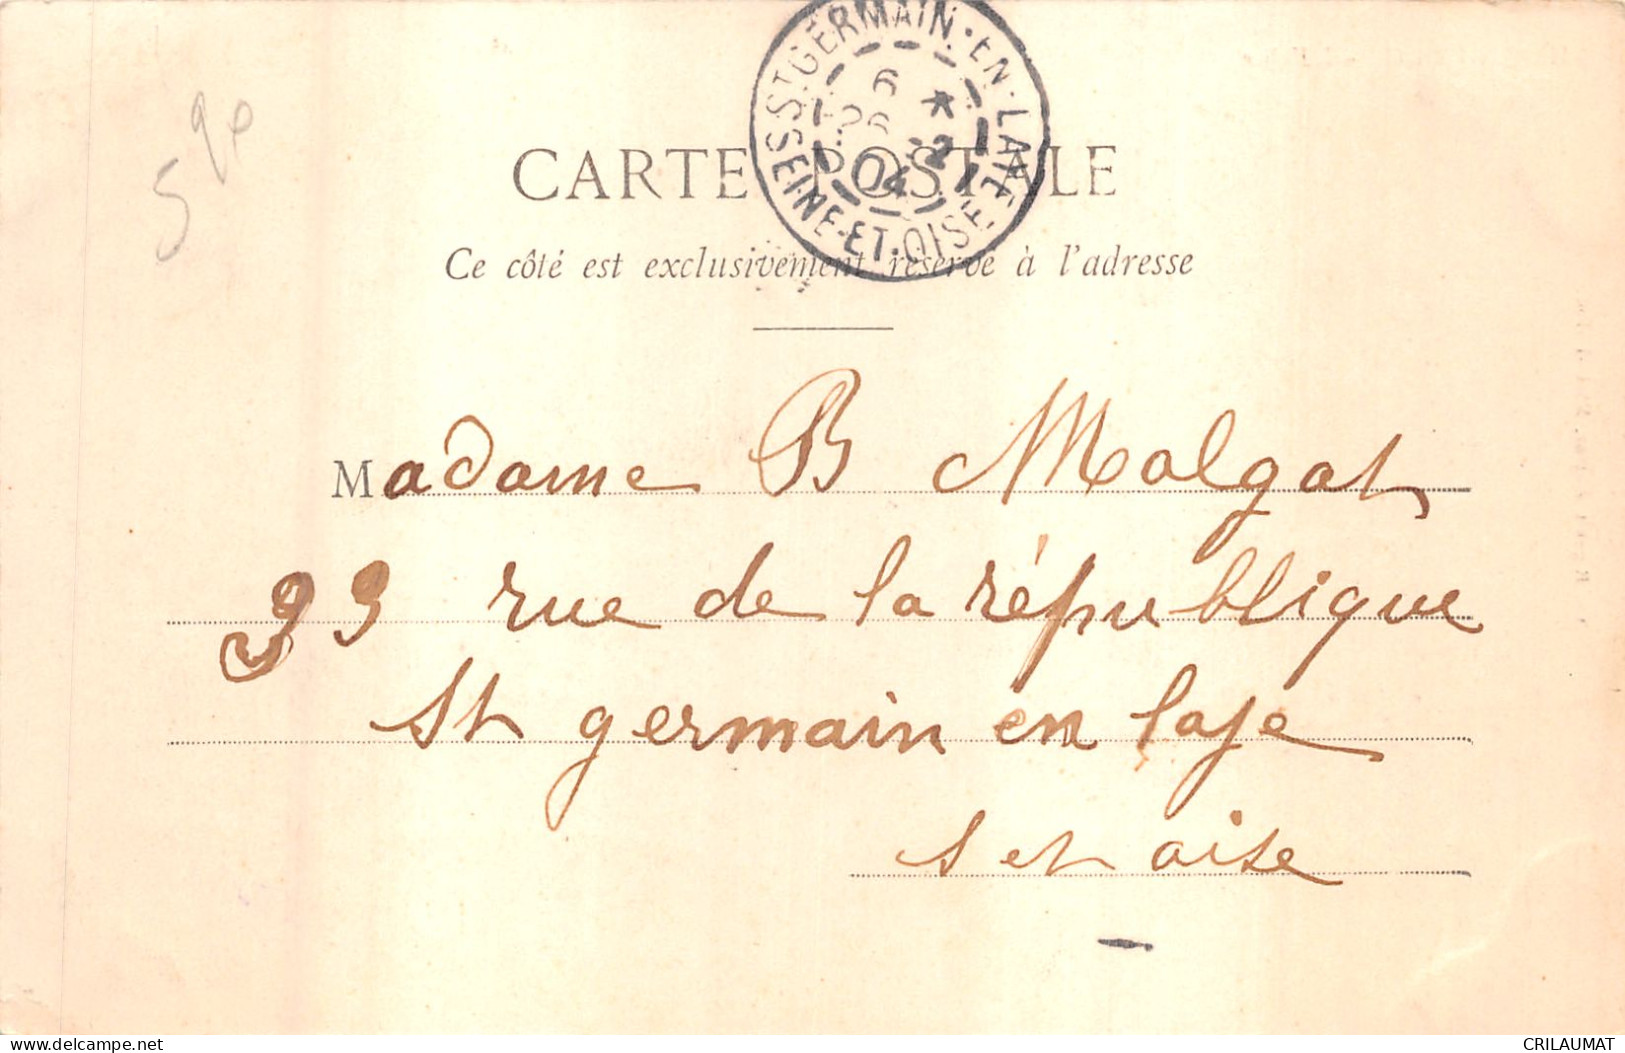 ST GERMAIN-EN-LAYE
6
26 -2
04
SEINE-ET-OISE
5 90
CARTE POSTALE
Ce côté est exclusivement réservé à l'adresse
Madame B Malgat
93 rue de la république
St germain en laye
S et oise
Delcampe.net
CRILAUMAT